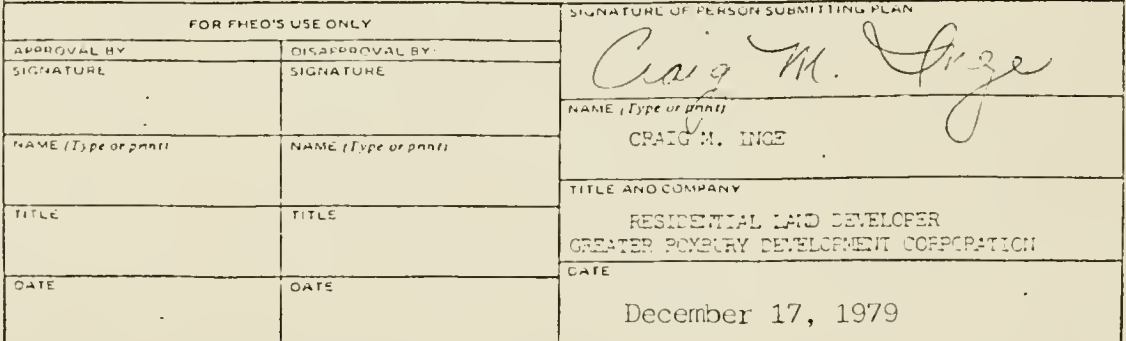 FOR FHEO'S USE ONLY
APPROVAL BY
DISAPPROVAL BY:
SIGNATURE
SIGNATURE
NAME (Type or print)
NAME (Type or print)
TITLE
TITLE
DATE
DATE
SIGNATURE OF PERSON SUBMITTING PLAN
Craig M. Inge
NAME (Type or print)
CRAIG M. INGE
TITLE AND COMPANY
RESIDENTIAL LAND DEVELOPER
GREATER ROXBURY DEVELOPMENT CORPORATION
DATE
December 17, 1979